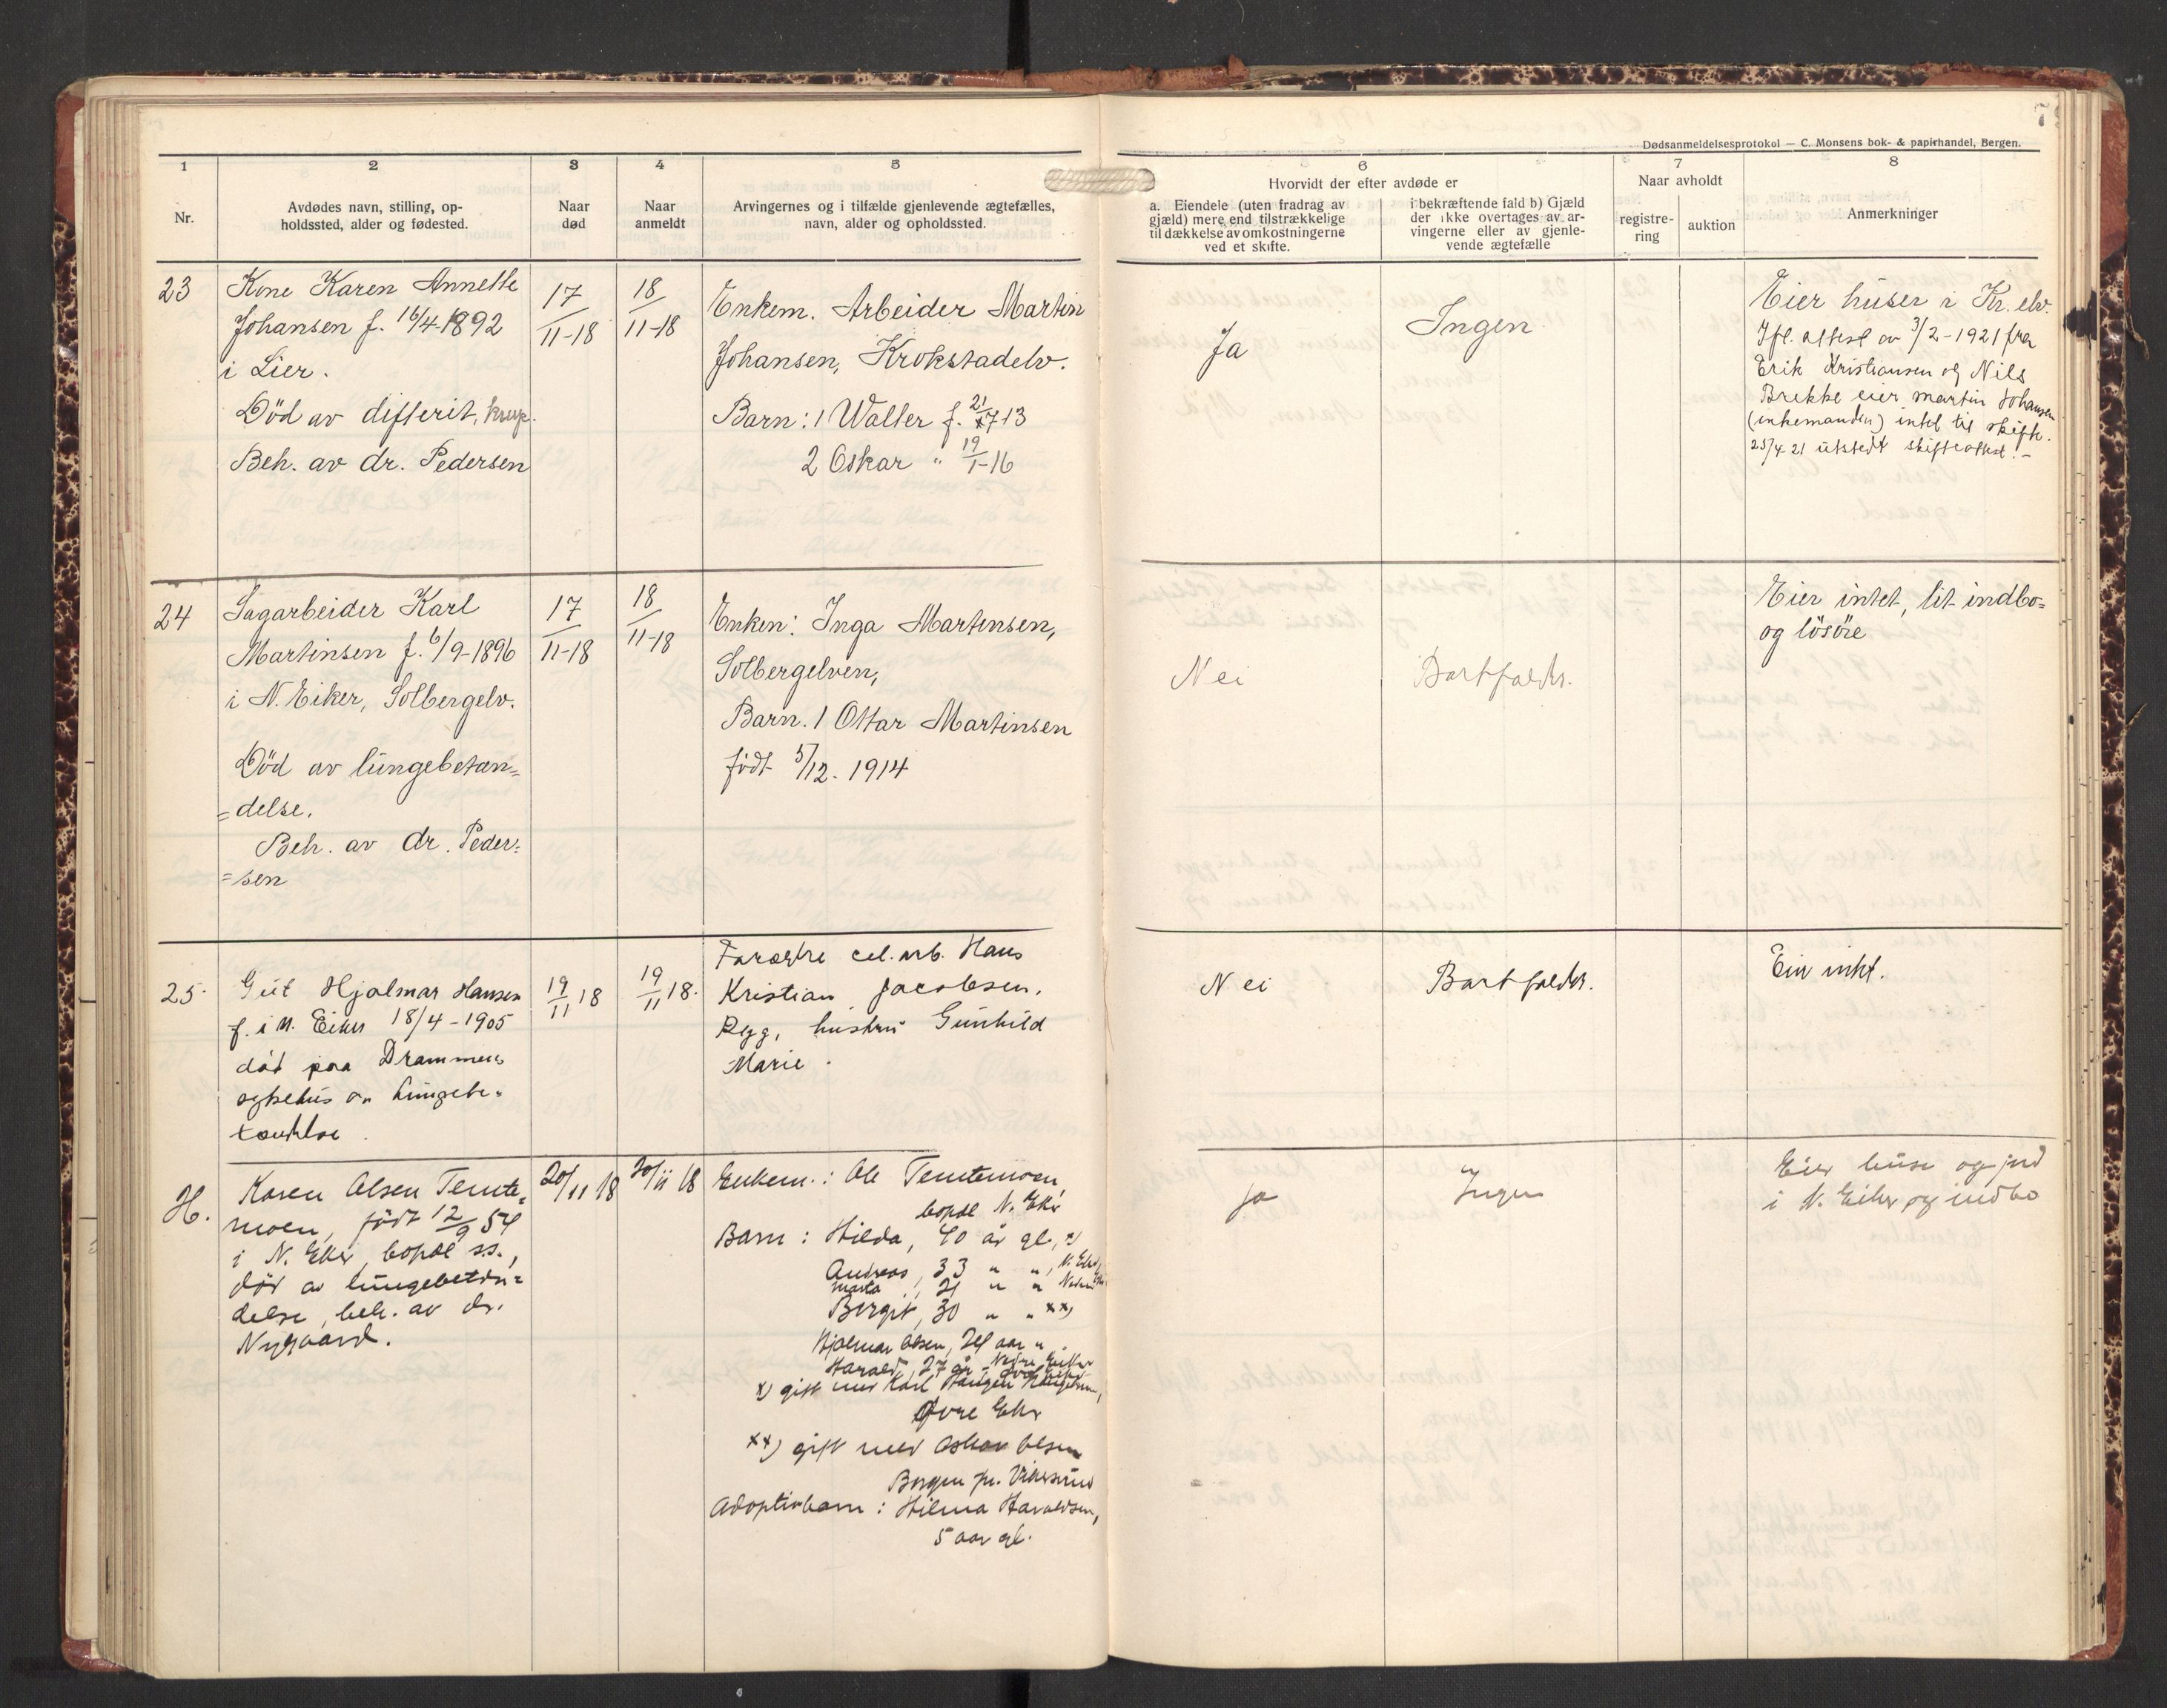 7
Dødsanmeldelsesprotokol — C. Monsens bok- & papirhandel, Bergen.
1
2
3
4
5
6
7
8
Nr.
Avdødes navn, stilling, op-
holdssted, alder og fødested.
Naar
død
Naar
anmeldt
Arvingernes og i tilfælde gjenlevende ægtefælles,
navn, alder og opholdssted.
Hvorvidt der efter avdøde er
a. Eiendele (uten fradrag av
gjæld) mere end tilstrækkelige
til dækkelse av omkostningerne
ved et skifte.
i bekræftende fald b) Gjæld
der ikke overtages av ar-
vingerne eller av gjenle-
vende ægtefælle
Naar avholdt
registre-
ring
auktion
Anmerkninger
23
Kone Karen Annette
Johansen f. 16/4-1892
i Lier.
Död av difterit, krup.
Beh. av dr. Pedersen
17/11-18
18/11-18
Enkem. Arbeider Martin
Johansen, Krokstadelv.
Barn: 1 Walter f. 21/7 13
2 Oskar " 19/1-16
Ja
Ingen
Eier huser i Kr. elv.
Ifl. attest av 3/2-1921 fra
Erik Kristiansen og Nils
Brekke eier Martin Johansen
(enkemanden) intet til skifte.
25/4 21 utstedt skifteattest. -
24
Sagarbeider Karl
Martinsen f. 6/9-1896
i N. Eiker, Solbergelv.
Död av lungebetæn=
=delse.
Beh. av dr. Peder=
=sen
17/11-18
18/11-18
Enken: Inga Martinsen,
Solbergelven,
Barn. 1 Ottar Martinsen
født 5/12. 1914
Nei
Bortfalder.
Eier intet, lit indbo=
og lösöre
25.
Gut Hjalmar Hansen
f. i N. Eiker 18/4-1905
död paa Drammens
sykehus av Lungebe=
tændelse.
19/11 18
19/11 18.
Forældre cel. arb. Hans
Kristian Jacobsen.
Rygg, hustru Gunhild
Marie.
Nei
Bortfalder.
Eier intet.
H.
Karen Olsen Temte=
moen, født 12/9 54
i N. Eker, bopæl ss.,
död av lungebetæn=
delse, beh. av dr.
Nygaard.
20/11 18
20/11 18
Enkem.: Ole Temtemoen,
bopæl N. Eker
Barn: Hilda, 40 år gl., x)
Andreas, 33 " ", N. Eker
Marta
Bergit, 30 " " xx)
Hjalmar Olsen, 24 aar "
Harald, 27 år - Nedre Eiker
x) gift med Karl
Øvre Eker
xx) gift med Oskar Olsen
Bergen pr. Vikersund
Adoptivbarn: Hilma Haraldsen,
5 aar gl.
Ja
Ingen
Eier huse og jord
i N. Eiker og indbo